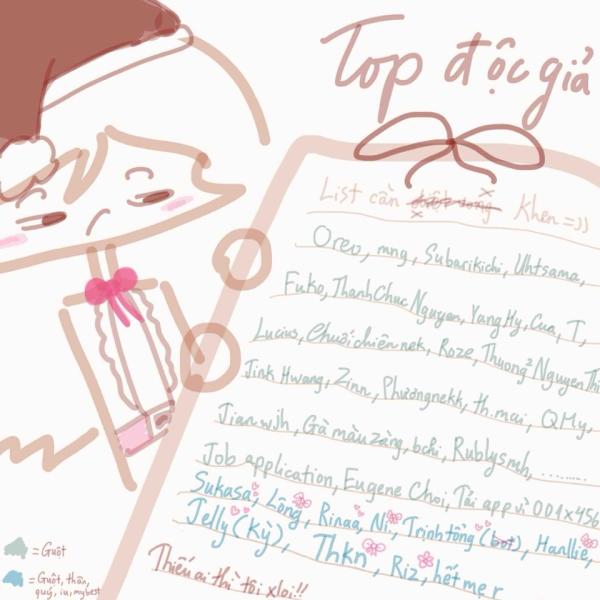 Top độc giả
List cần Khen =))
Oreo, mng, Subarikichi, Uhtsama,
Fuko, ThanhChuc Nguyen, YangHy, Cua, T,
Lucius, Chuối chiên nek, Roze, Thuong² Nguyen Thi
Jink Hwang, Zinn, Phươngnekk, th.mai, QMy,
Jian wjh, Gà màu zàng, bchi, Rublysmh, ........
Job application, Eugene Choi, Tải app vì 001x456
Sukasa, Lông, Rinaa, Ni, Trinhtông (bot), Hanllie,
Jelly (Kỳ), Thkn, Riz, hết mẹ r
Thiếu ai thì tôi xloi!!
= Guột
= Guột, thân,
quý, iu, mybest